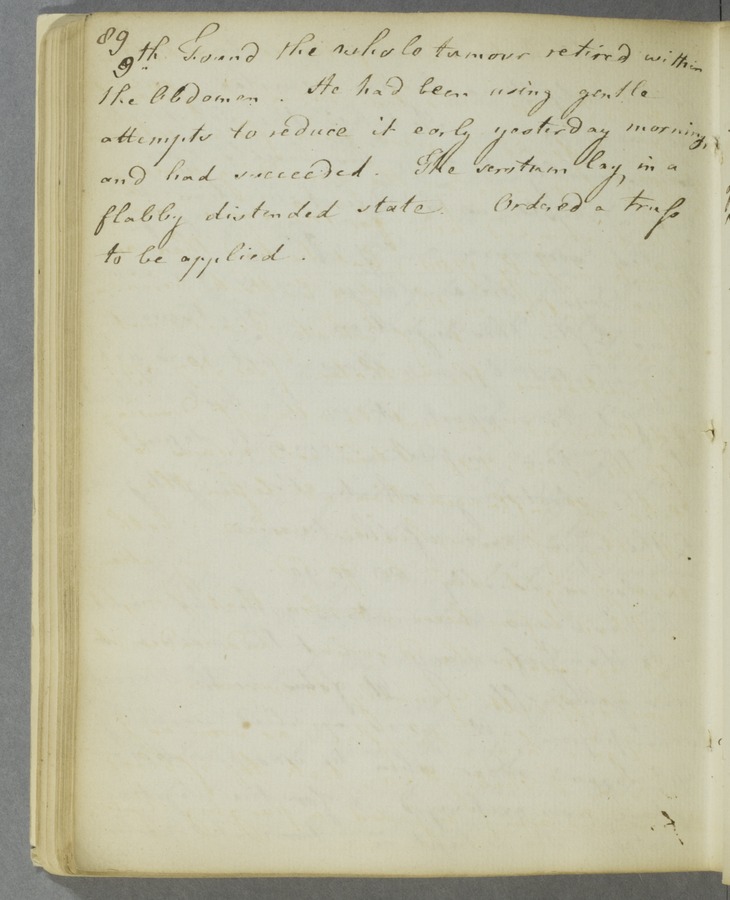 89
9th. Found the whole tumour retired within
the Abdomen. He had been using gentle
attempts to reduce it early yesterday morning,
and had succeeded. The scrotum lay, in a
flabby distended state. Ordered a truss
to be applied.